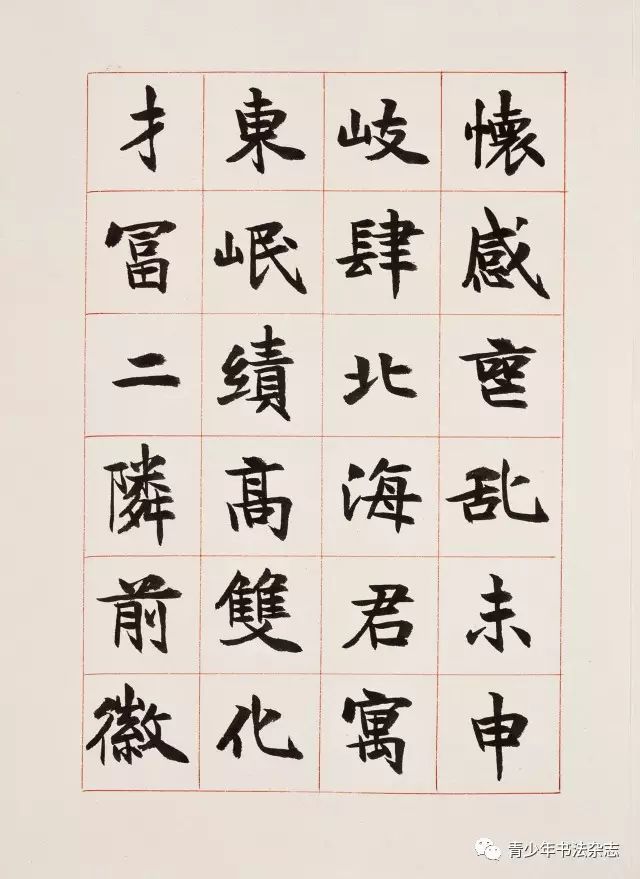 懷感喪乱未申
岐肆北海君寓
東岷績高雙化
才冨二隣前徽
青少年书法杂志